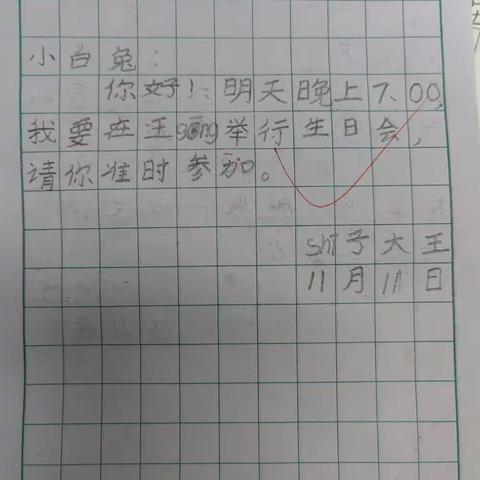 小白兔：
你好！明天晚上7、00，
我要在王gōng举行生日会，
请你准时参加。
shī子大王
11月11日